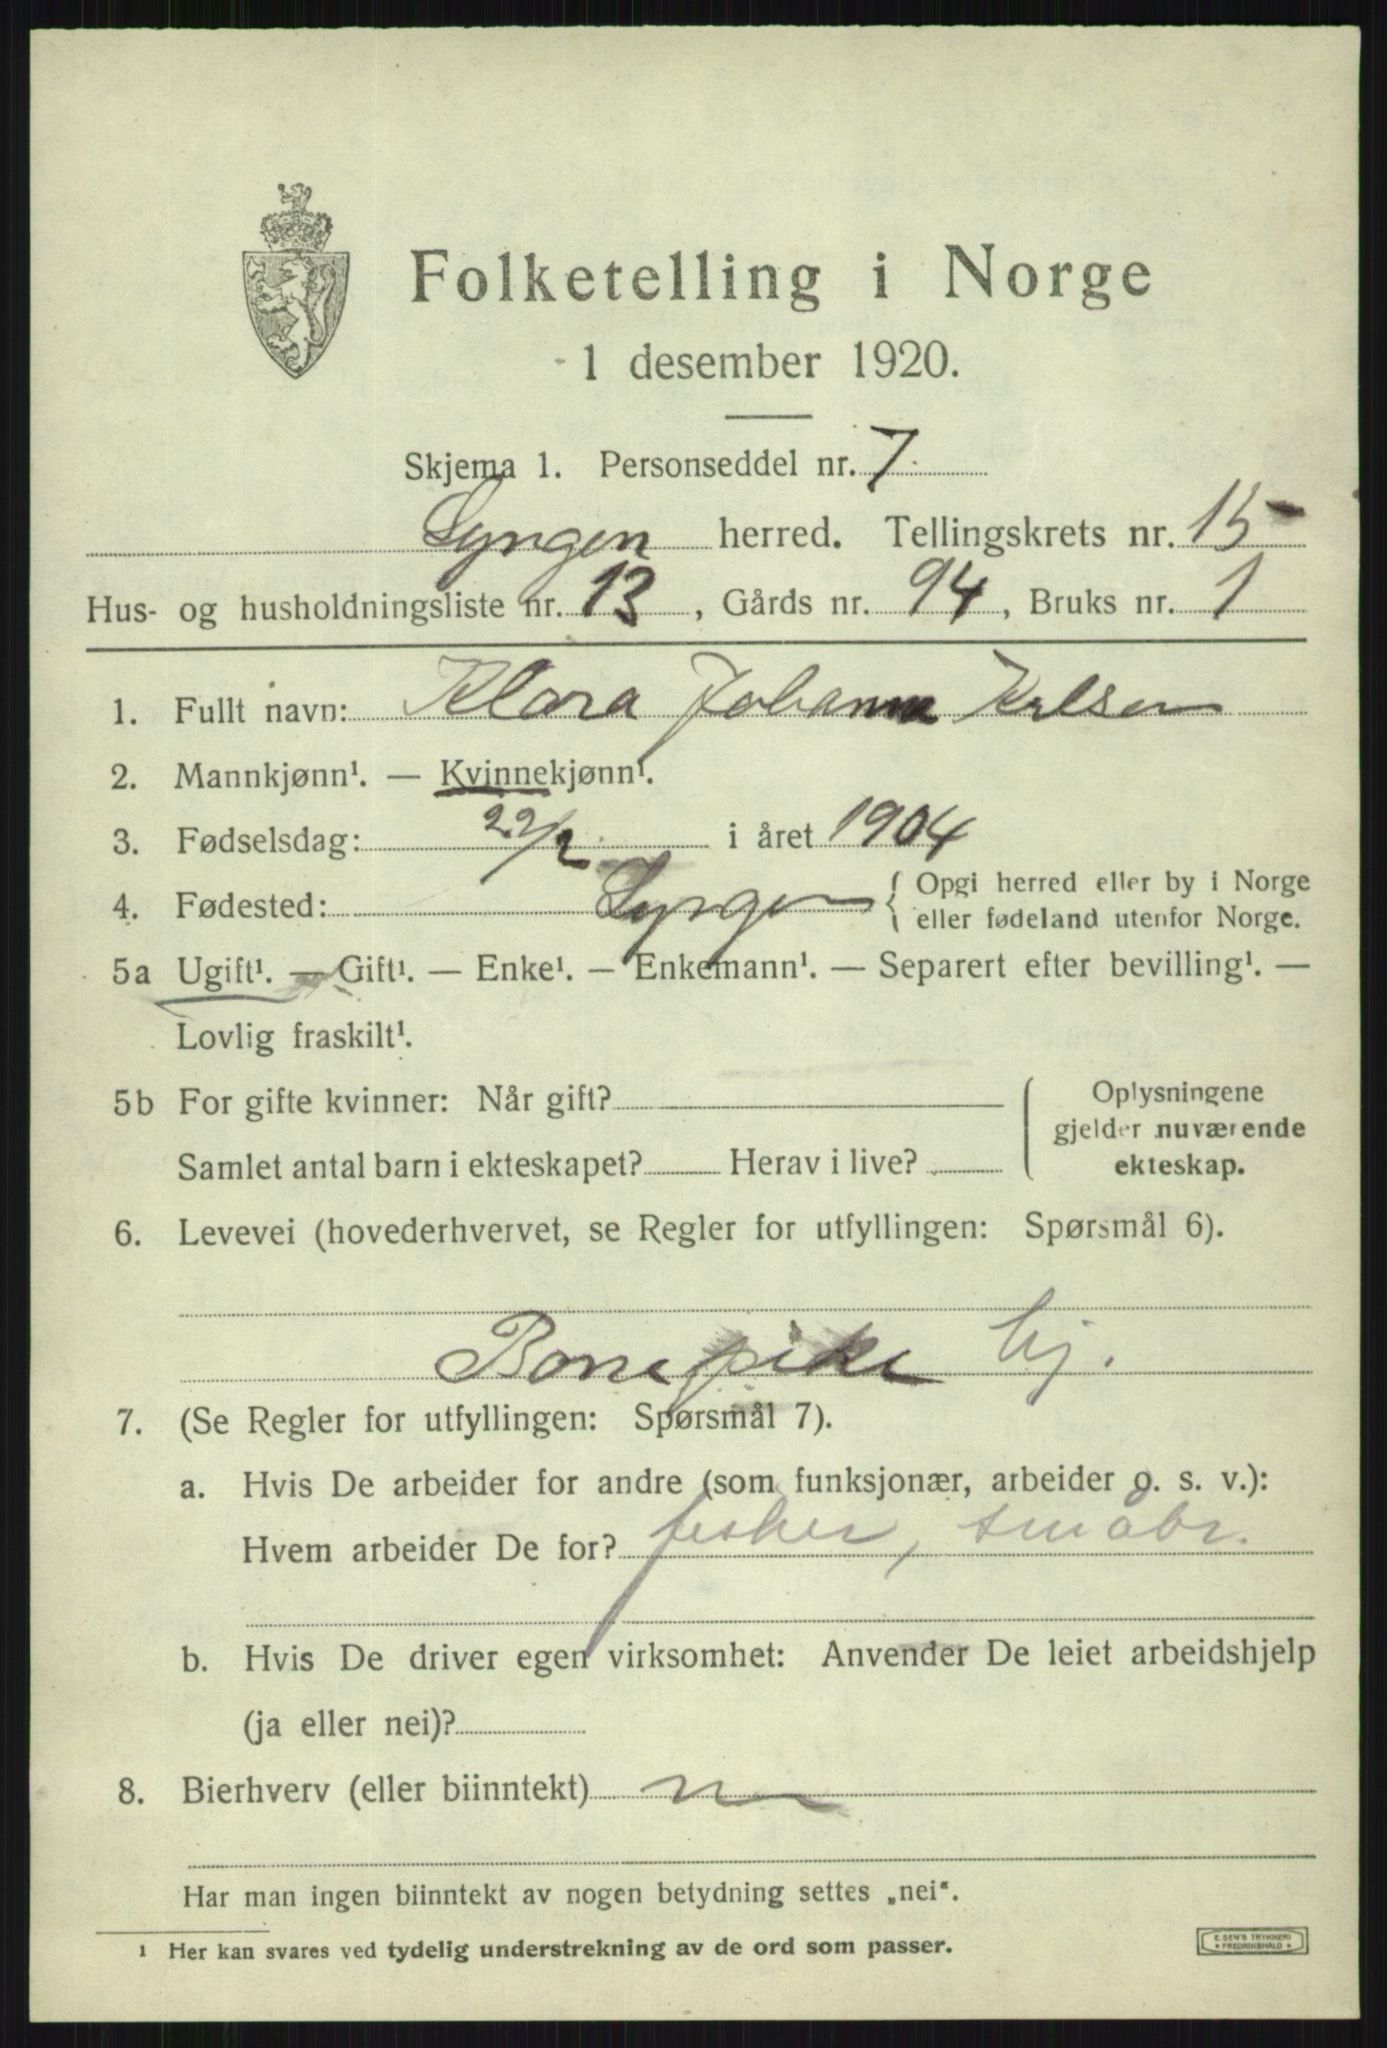 Folketelling i Norge
1 desember 1920.
Skjema 1. Personseddel nr. 7.
Lyngen herred. Tellingskrets nr. 15
Hus- og husholdningsliste nr. 13, Gårds nr. 94, Bruks nr. 1
1. Fullt navn: Klara Johanna
2. Mannkjønn¹. — Kvinnekjønn¹.
3. Fødselsdag: 22/2 i året 1904
4. Fødested: Lyngen { Opgi herred eller by i Norge
eller fødeland utenfor Norge.
5a Ugift¹. — Gift¹. — Enke¹. — Enkemann¹. — Separert efter bevilling¹. —
Lovlig fraskilt¹.
5b For gifte kvinner: Når gift?
Samlet antal barn i ekteskapet? Herav i live?
Oplysningene
gjelder nuværende
ekteskap.
6. Levevei (hovederhvervet, se Regler for utfyllingen: Spørsmål 6).
hj.
7. (Se Regler for utfyllingen: Spørsmål 7).
a. Hvis De arbeider for andre (som funksjonær, arbeider o. s. v.):
Hvem arbeider De for? fisker, småbr.
b. Hvis De driver egen virksomhet: Anvender De leiet arbeidshjelp
(ja eller nei)?
8. Bierhverv (eller biinntekt)
Har man ingen biinntekt av nogen betydning settes „nei".
¹ Her kan svares ved tydelig understrekning av de ord som passer.
E. SEM'S TRYKKERI
* FREDRIKSHALD *